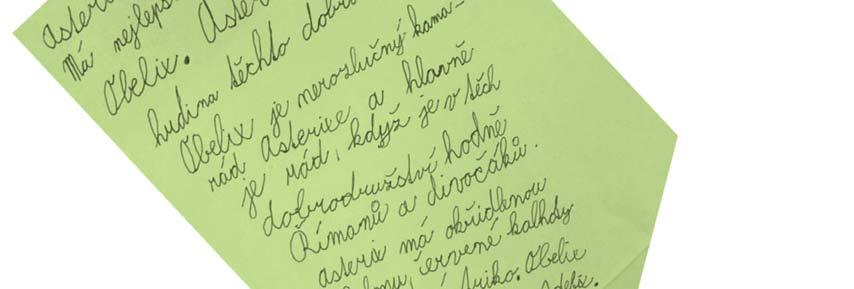 Má nejlepš
Obelix. Aste
hrdina těchto dobr
Obelix je nerozlučný kama-
rád Asterixe a hlavně
je rád, když je v těch
dobrodružství hodně
Římanů a divočáků.
asterix má okřídlenou
červené kalhoty
triko. Obelix